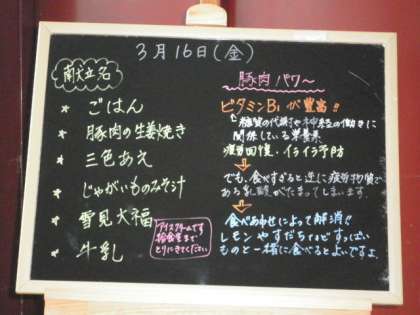 3月16日(金)
献立名
* ごはん
* 豚肉の生姜焼き
* 三色あえ
* じゃがいものみそ汁
* 雪見大福
* 牛乳
アイスクリームです
給食室まで
とりにきてください
豚肉パワ～
ビタミンB₁が豊富!!
糖質の代謝や神経の働きに
関係している栄養素
疲労回復・イライラ予防
でも、食べすぎると逆に疲労物質で
ある乳酸がたまってしまいます.
食べあわせによって解消!!
レモンやすだちなどすっぱい
ものと一緒に食べるとよいですよ。